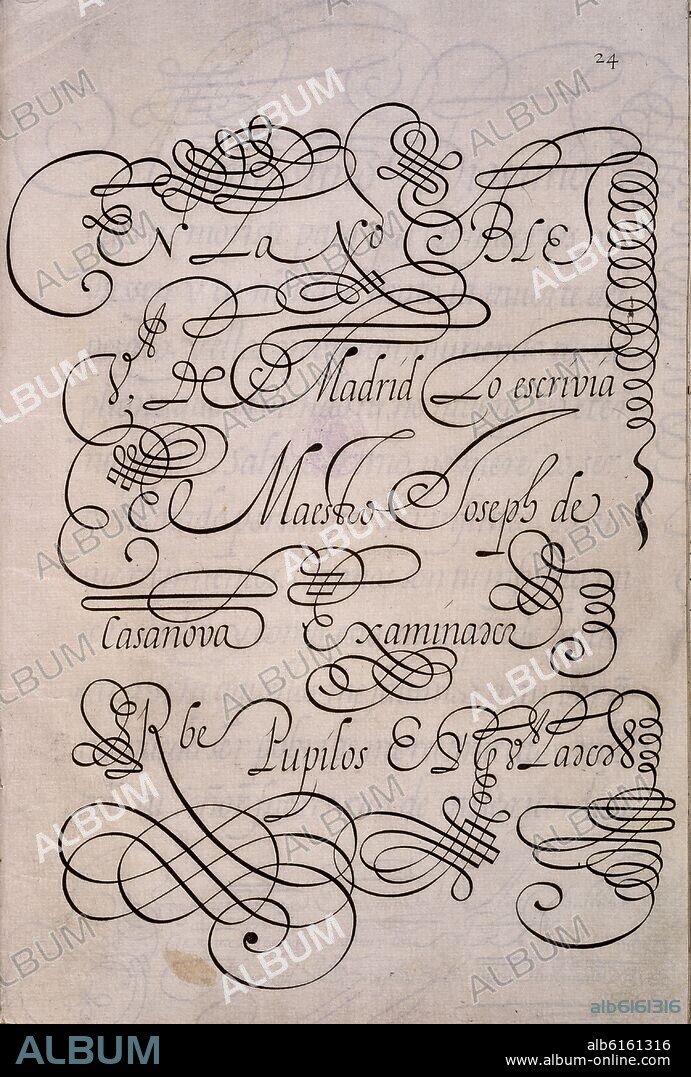 24
EN La No BLE
V.ª De Madrid Lo escrivia
El Maestro Joseph de
Casanova Examinador
Rbe Pupilos E
ALBUM
alb6161316
ALBUM
alb6161316
www.album-online.com